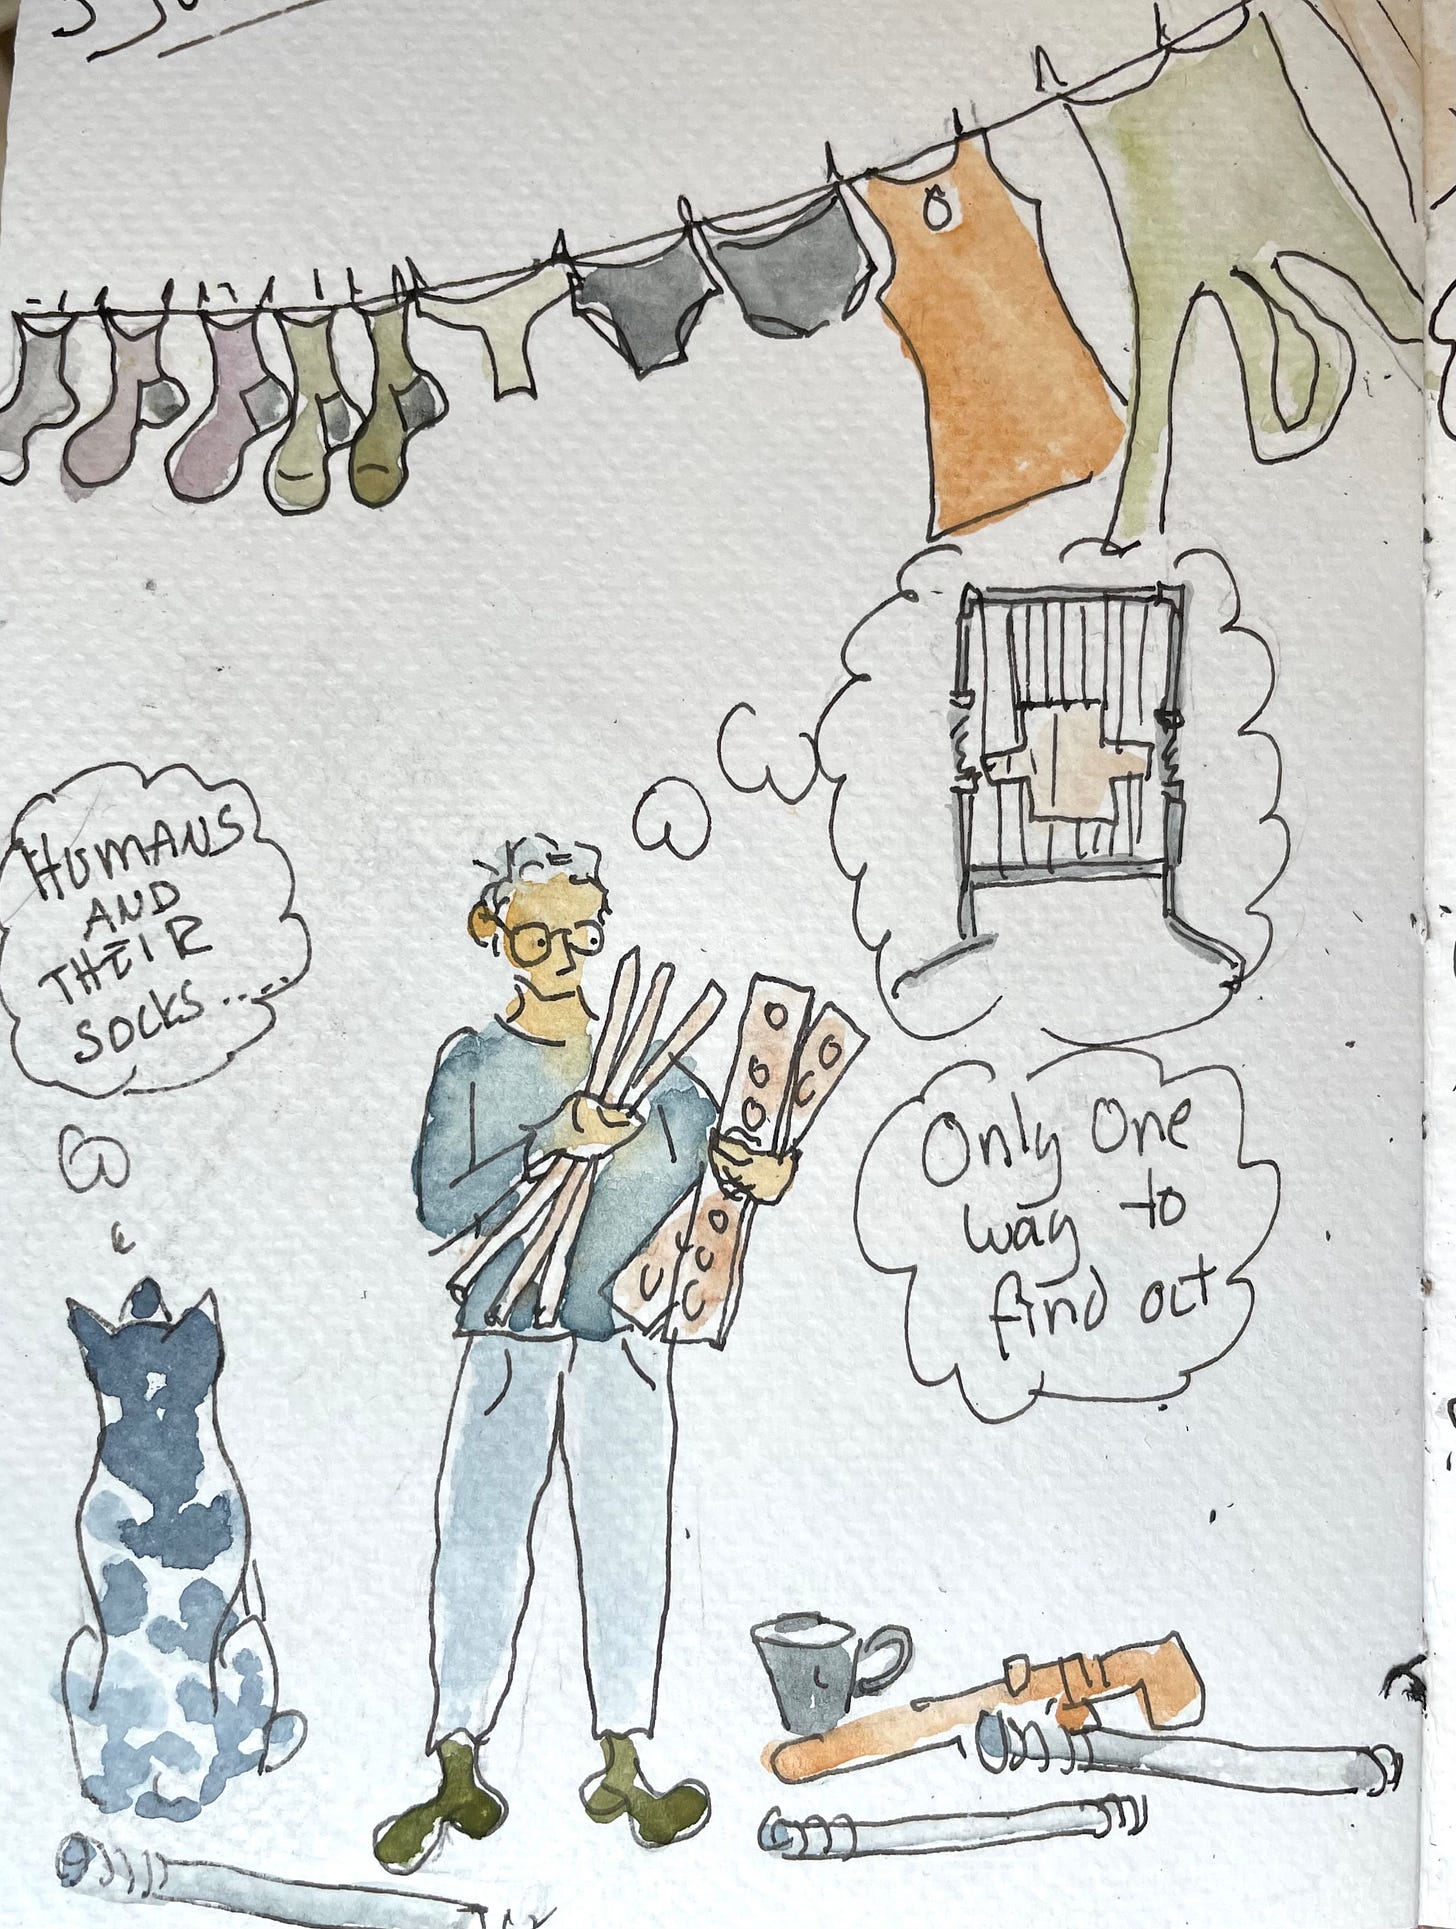 HUMANS
AND
THEIR
SOCKS.....
Only One
way to
find out